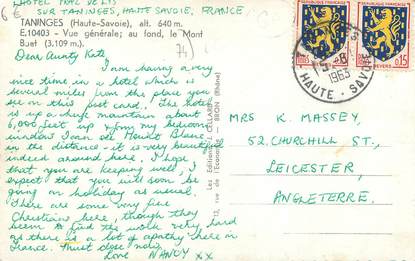 HOTEL PRAZ DE LYS
SUR TANINGES, HAUTE SAVOIE, FRANCE
TANINGES (Haute-Savoie), alt. 640 m.
E.10403 - Vue générale; au fond, le Mont
Buet (3.109 m.).
74
Dear Aunty Kate,
I am having a very
nice time in a hotel which is
several miles from the place you
see on this post card. The hotel
is up a huge mountain about
6,000 feet up & from my bedroom
window I can see Mount Blanc
in the distance - it is very beautiful
indeed around here. I hope
that you are keeping well, I
expect that you will soon be
going on holiday as usual.
There are some very fine
Christians here, though they
seem to find the work very hard
as there is a lot of apathy here in
France. Must close now,
love NANCY xx
Les Editions CELLARD
BRON (Rhône)
MRS K. MASSEY,
52, CHURCHILL ST.,
LEICESTER,
ANGLETERRE.
1963
HAUTE - SAVOIE
NEVERS
0,15